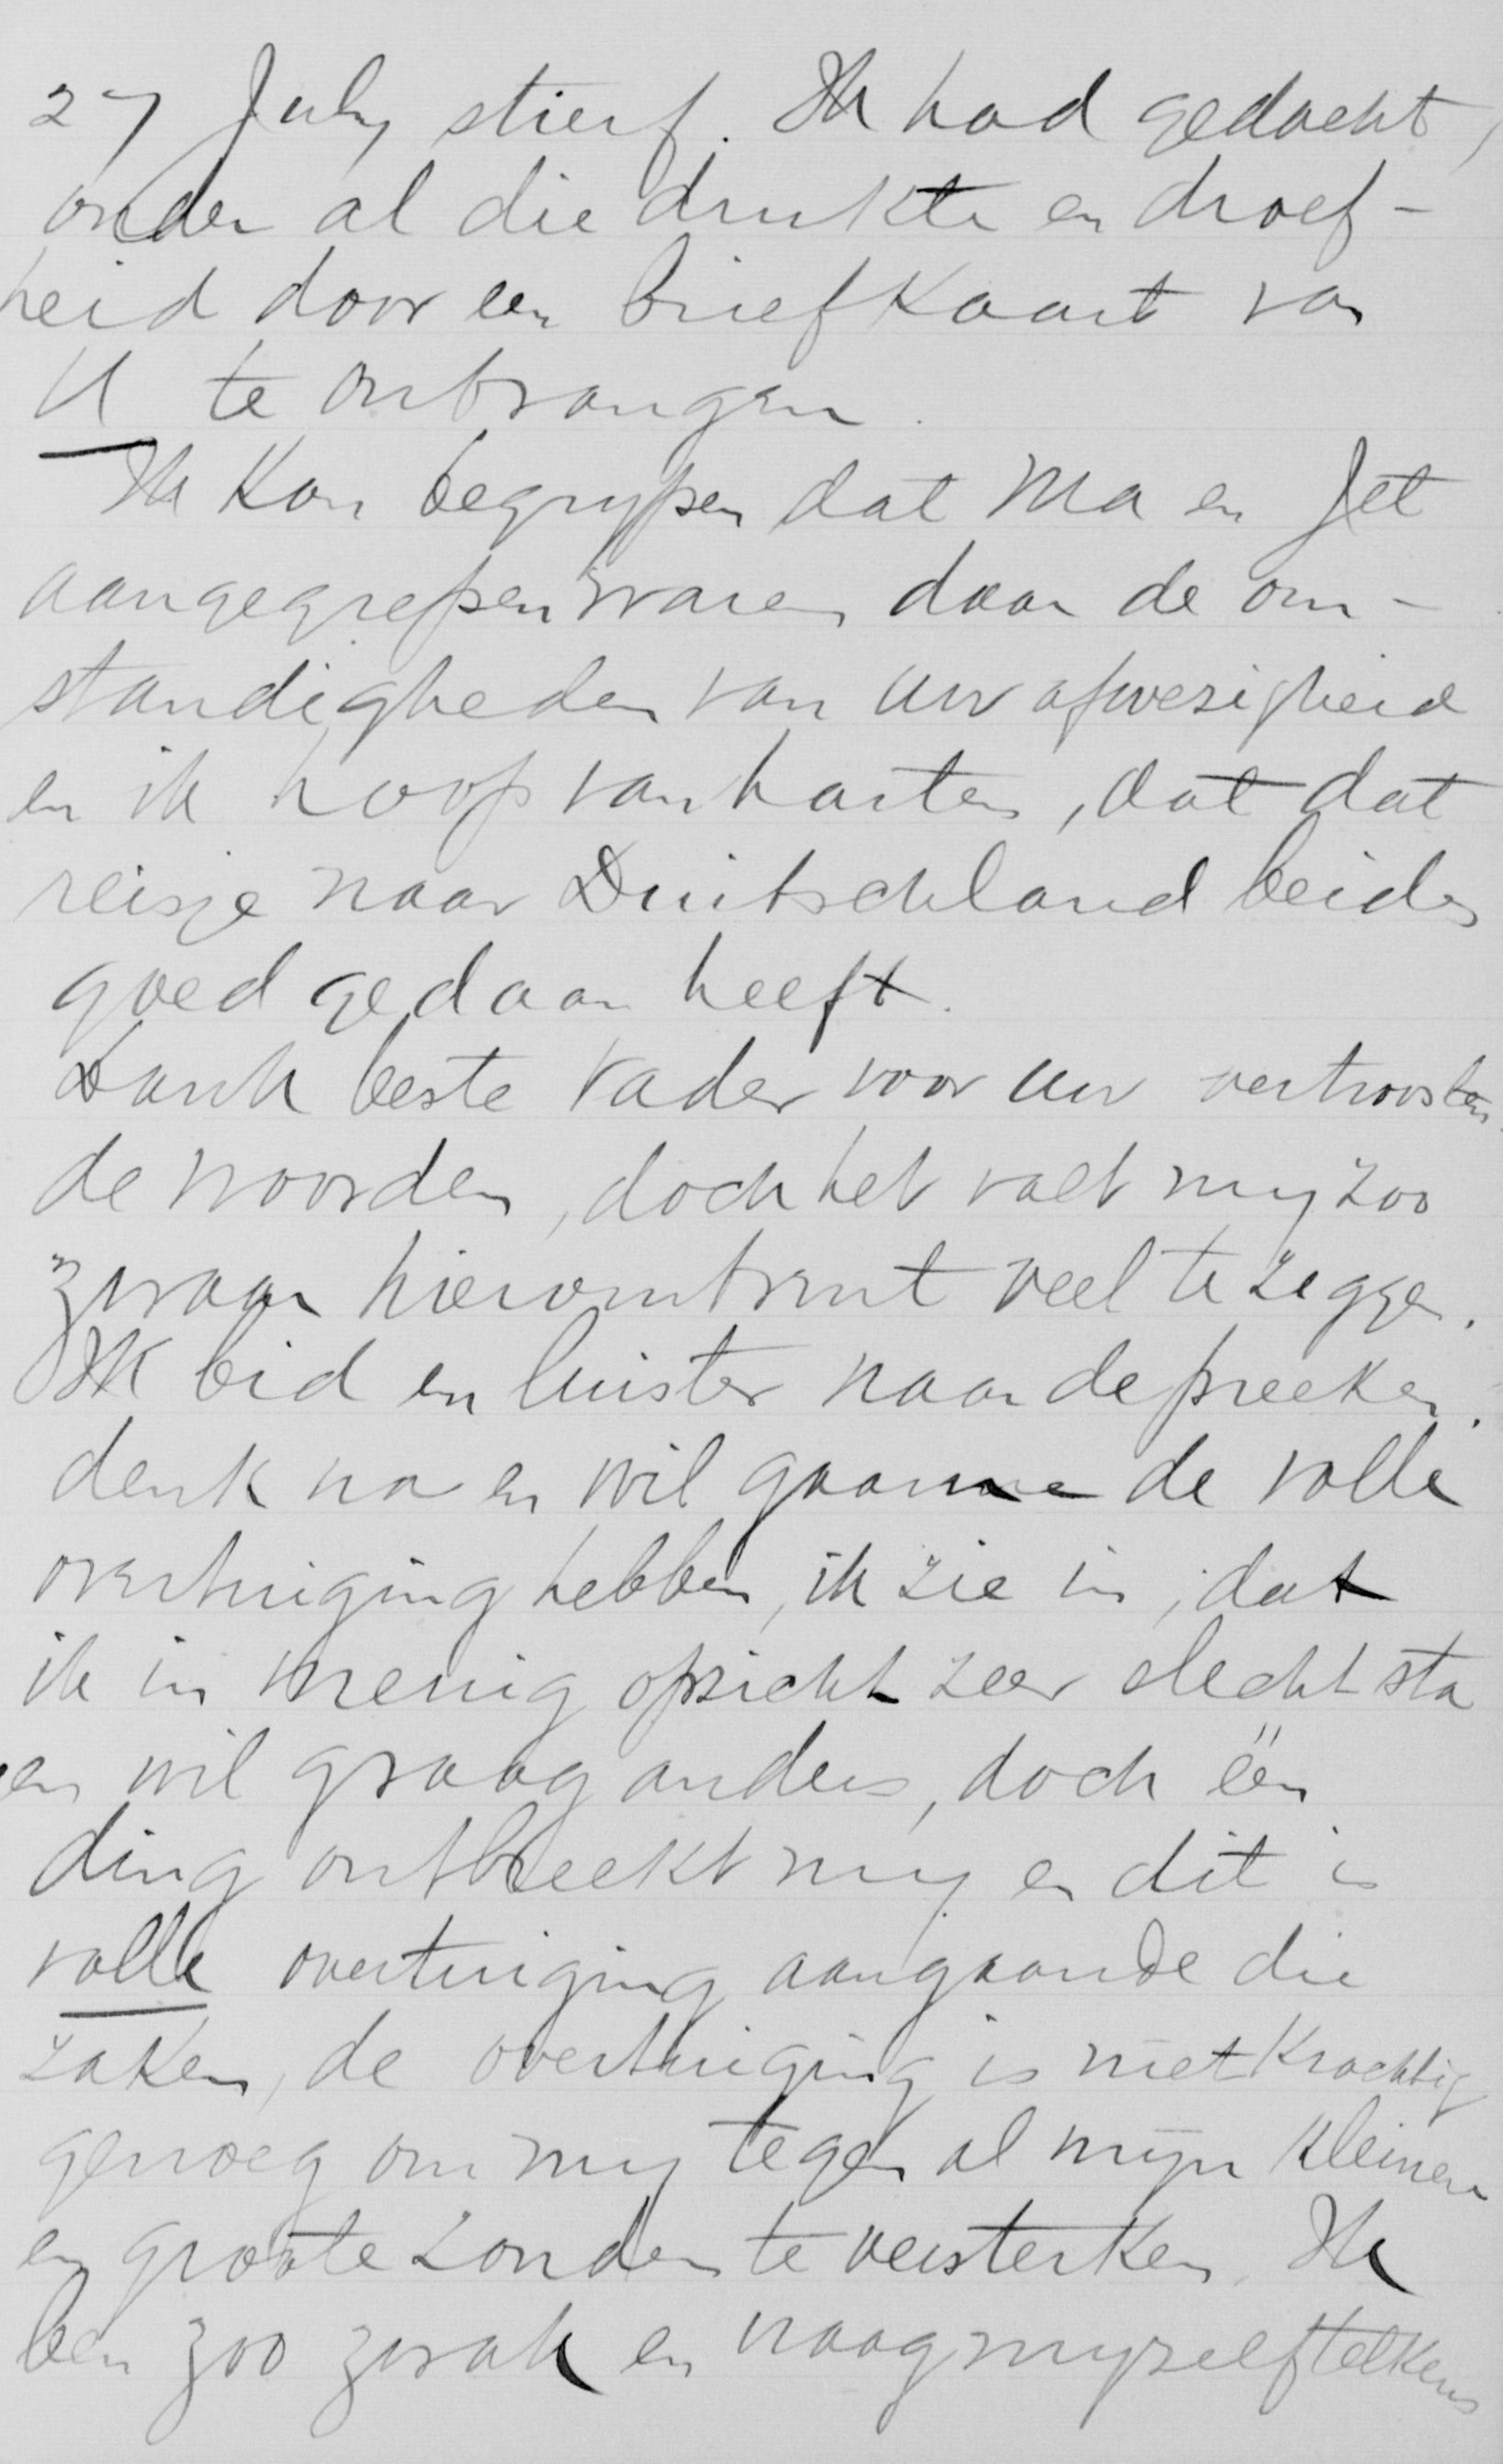 27 July stierf. Ik had gedacht,
onder al die drukte en droef-
heid door een briefkaart van
U te ontvangen.
Ik kon begrypen dat Ma en Jet
aangegrepen waren door de om-
standigheden van uw afwezigheid
en ik hoop van harten, dat dat
reisje naar Duitschland beiden
goed gedaan heeft.
Dank beste Vader voor uw vertroosten-
de woorden, doch het valt my zoo
zwaar hieromtrent veel te zeggen.
Ik bid en luister naar de preeken,
denk na en wil gaarne de volle
overtuiging hebben, ik zie in, dat
ik in menig opzicht zeer slecht sta
en wil graag anders, doch één
ding ontbreekt my en dit is
volle overtuiging aangaande die
zaken, de overtuiging is niet krachtig
genoeg om my tegen al mijn kleinen
en groote zonden te versterken. Ik
ben zoo zwak en vraag myzelf telkens